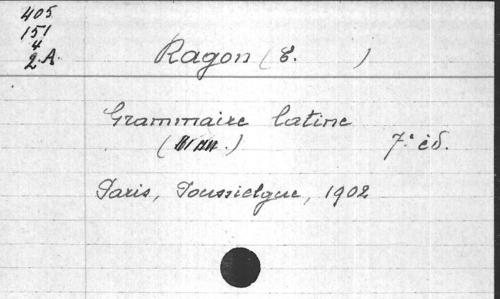 405
151
4
2.A.
Ragon (E. )
Grammaire latine
7.e éd.
Paris, Poussielgue, 1902